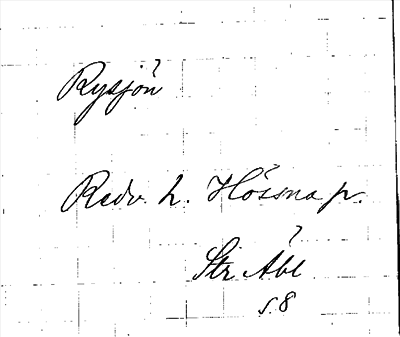 Rysjön
Redv. h. Hössna p.
Str Åbl
s. 8